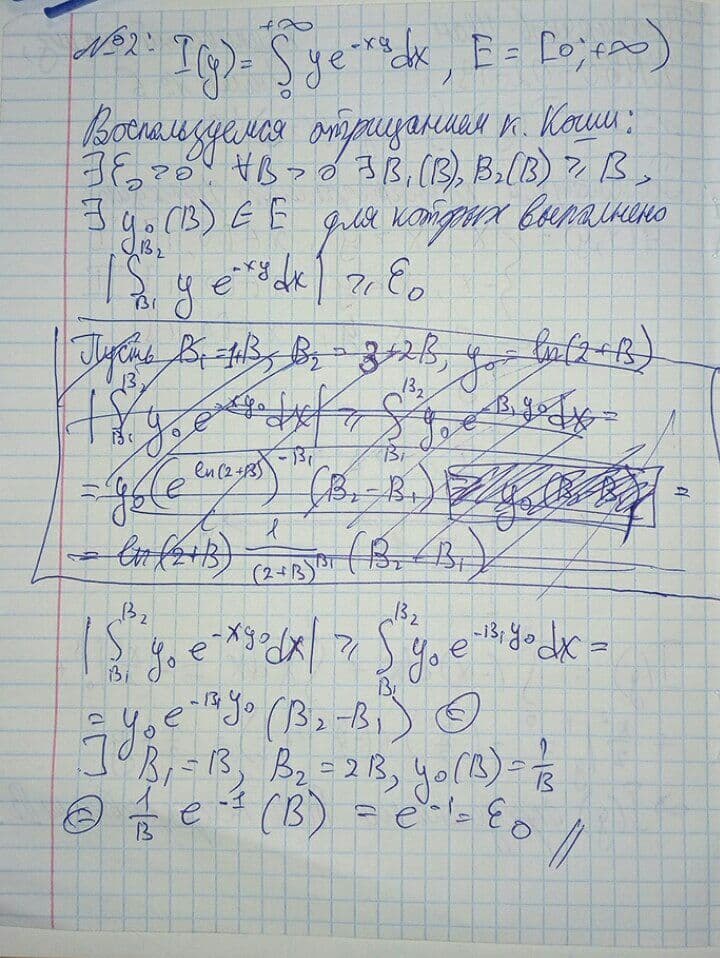 №2: I(y) = ∫₀^{+∞} y e^{-xy} dx, E = [0; +∞)
Воспользуемся отрицанием к. Коши:
∃ ε₀ > 0 : ∀B > 0 ∃ B₁(B), B₂(B) ≥ B,
∃ y₀(B) ∈ E для которых выполнено
|∫_{B₁}^{B₂} y e^{-xy} dx| ≥ ε₀
Пусть B₁ = 1+B, B₂ = 3+2B, y₀ = ln(2+B)
|∫_{B₁}^{B₂} y₀ e^{-xy₀} dx| ≥ ∫_{B₁}^{B₂} y₀ e^{-B₁y₀} dx =
= y₀ (e^{ln(2+B)})^{-B₁} (B₂-B₁) =
= ln(2+B) 1/(2+B)^{B₁} (B₂-B₁)
|∫_{B₁}^{B₂} y₀ e^{-xy₀} dx| ≥ ∫_{B₁}^{B₂} y₀ e^{-B₁y₀} dx =
= y₀ e^{-B₁y₀} (B₂-B₁) ⊜
∃ B₁ = B, B₂ = 2B, y₀(B) = 1/B
⊜ 1/B e^{-1} (B) = e^{-1} = ε₀ //